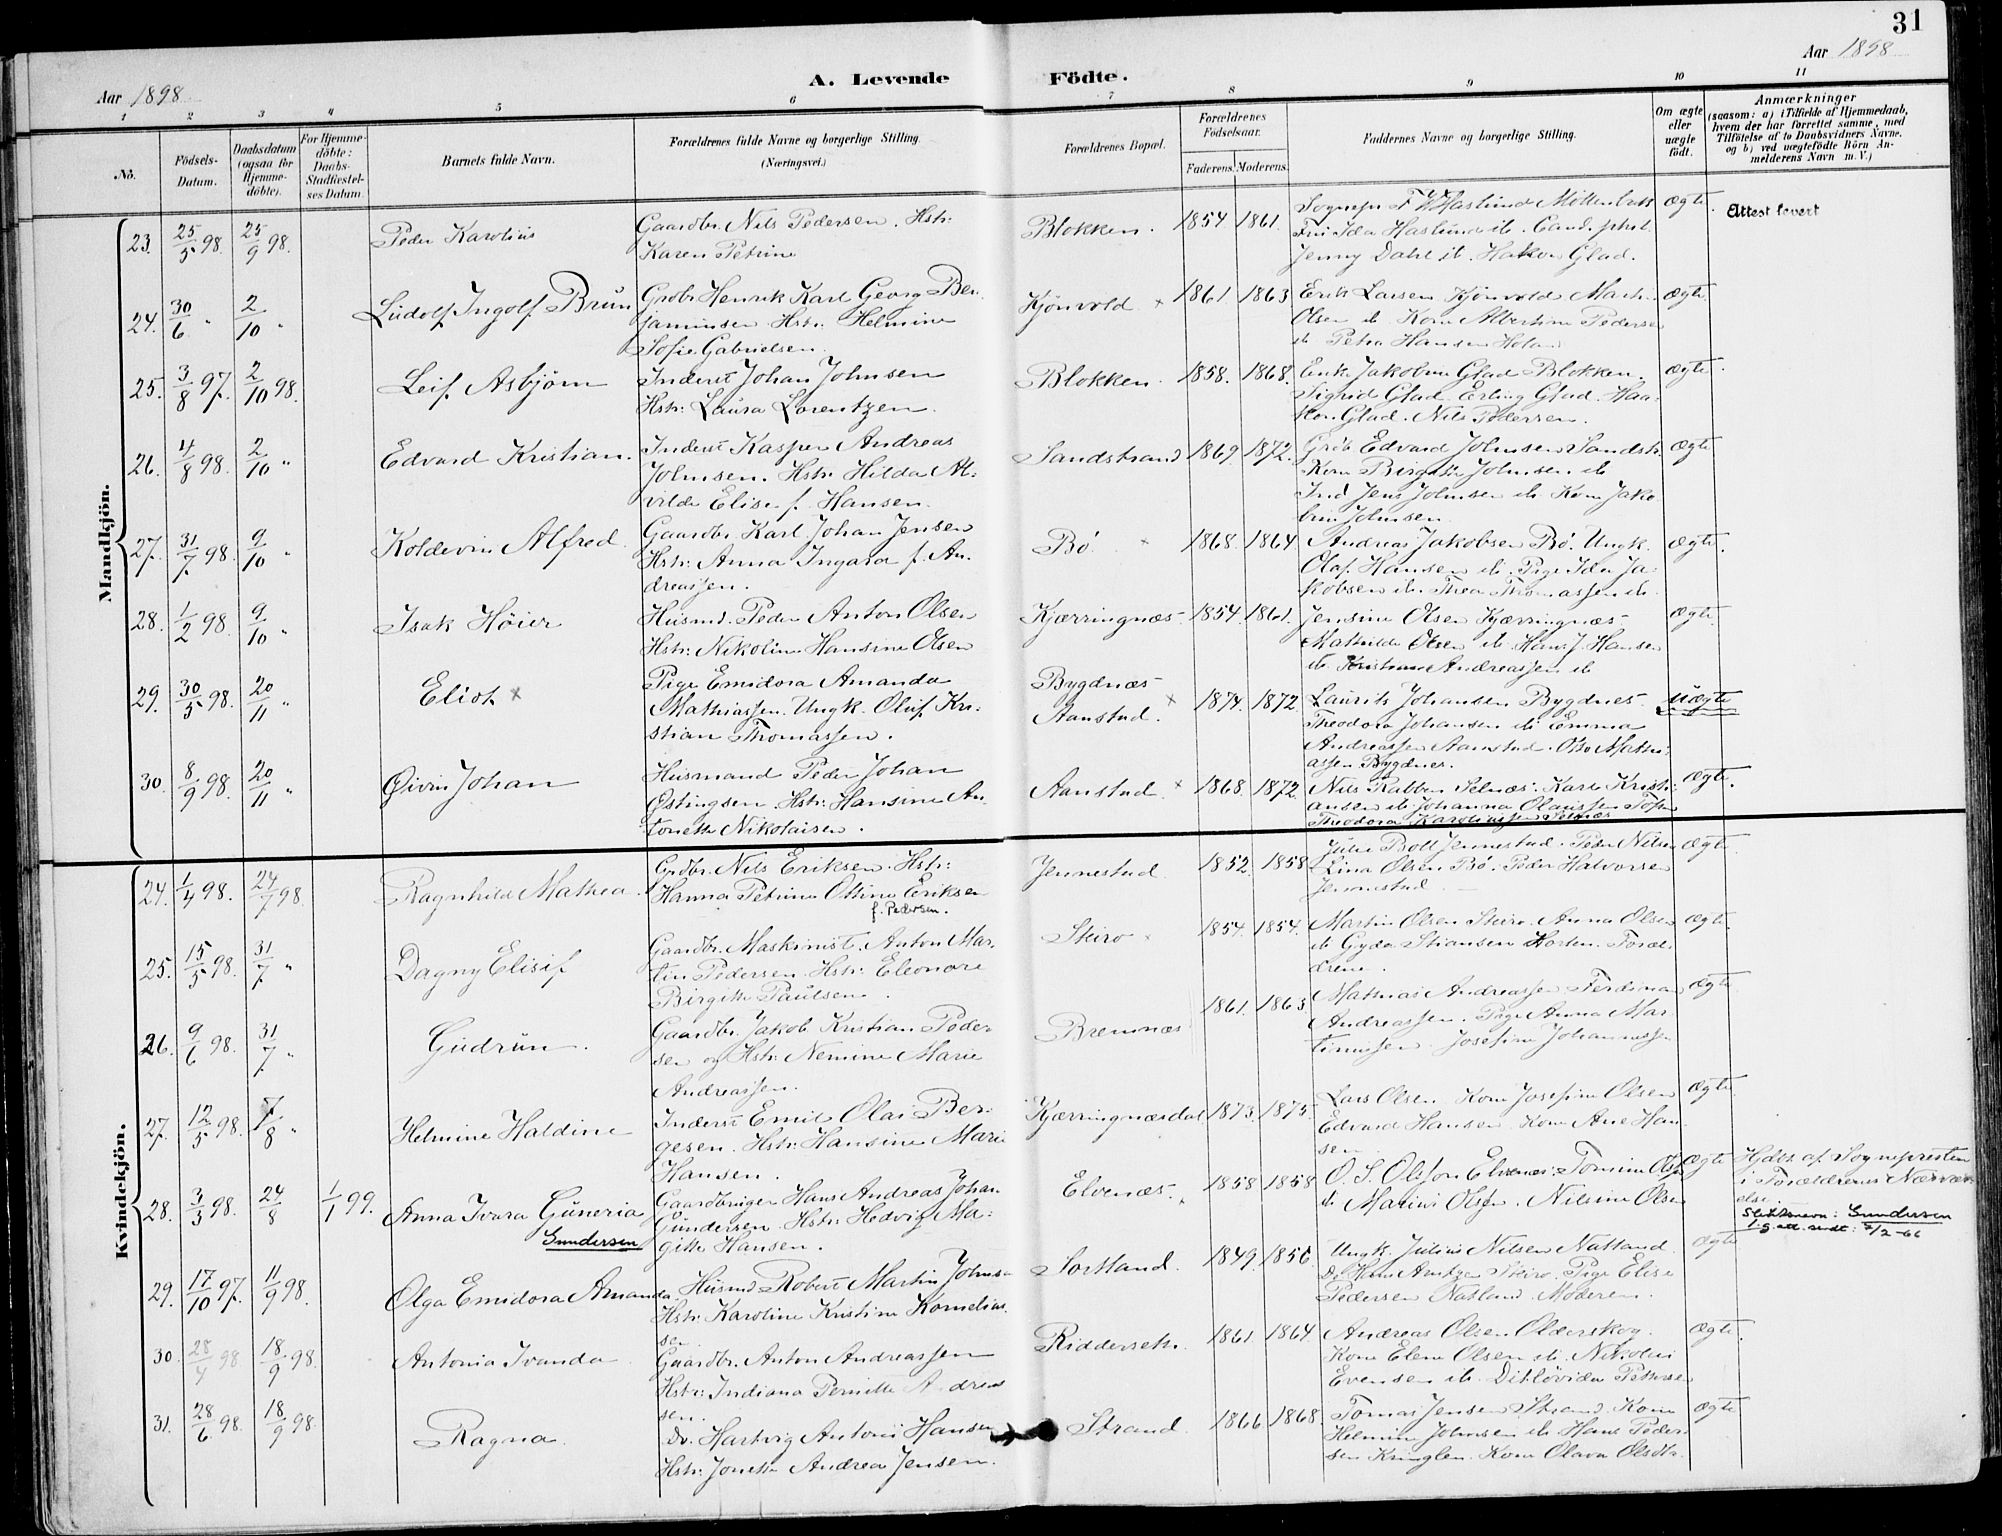 31
Aar 1898
A. Levende Födte.
Aar 1898
1 2 3 4 5 6 7 8 9 10 11
No.
Födsels-Datum.
Daabsdatum (ogsaa for Hjemme-döbte).
For Hjemme-döbte: Daabs-Stadfæstel-ses Datum.
Barnets fulde Navn.
Forældrenes fulde Navne og borgerlige Stilling. (Næringsvei.)
Forældrenes Bopæl.
Forældrenes Födselsaar.
Faderens. Moderens.
Faddernes Navne og borgerlige Stilling.
Om ægte eller uægte födt.
Anmærkninger (saasom: a) i Tilfælde af Hjemmedaab, hvem der har forrettet samme, med Tilföielse af to Daabsvidners Navne. og b) ved uægtefödte Börn An-melderens Navn m. V.)
Mandkjön.
23. 25/5 98. 25/9 98. Peder Karolius
Gaardbr. Nils Pedersen. Hstr:
Karen Petrine
Blokken. 1854 1861.
Sognepr F W Haslund
Fru Ida Haslund ib. Cand. phil.
Jenny Dahl ib. Hakon Glad.
ægte. Attest levert
24. 30/6 " 2/10 " Ludolf Ingolf Brun
Grbr. Henrik Karl Georg Ben
jaminsen Hstr. Helmine
Sofie Gabrielsen.
Kjönvold × 1861 1863
Erik Larsen Kjönvold
Olsen ib Kone Albertine Pedersen
ib Petra Hansen
ægte.
25. 3/8 97. 2/10 98. Leif Asbjørn
Inderst Johan Johnsen
Hstr: Laura Lorentzen.
Blokken. 1858. 1868.
Enke Jakobine Glad Blokken.
Sigrid Glad Erling Glad. Haa-
kon Glad. Nils Pedersen.
ægte.
26. 4/8 98. 2/10 " Edvard Kristian.
Inderst Kasper Andreas
Johnsen. Hstr: Hilda Al-
vilde Elise f. Hansen.
Sandstrand 1869 1872.
Grdb Edvard Johnsen Sandstr.
Kone Birgitte Johnsen ib
Ind Jens Johnsen ib Kone Jako
bine Johnsen
ægte
27. 31/7 98. 9/10 " Koldevin Alfred.
Gaardbr. Karl Johan Jensen
Hstr: Anna Ingara f. An-
dreassen.
Bö. × 1868. 1864
Andreas Jakobsen Bö. Ungk.
Olaf Hansen ib. Pige Ida Ja-
kobsen ib. Thea Thomassen ib.
ægte.
28. 1/2 98. 9/10 " Isak Höier
Husmd. Peder Anton Olsen
Hstr: Nikoline Hansine Olsen
Kjærringnæs 1854. 1861.
Jensine Olsen Kjærringnæs
Mathilde Olsen ib Hans J. Hansen
ib Andreassen ib
ægte.
29. 30/5 98. 20/11 " Eliot ×
Pige Emidora Amanda
Mathiassen. Ungk. Oluf Kri-
stian Thomassen.
Bygdnæs
Aanstad. × 1874. 1872
Laurits Johansen Bygdnes
Theodora Johansen ib Emma
Andreassen Aanstad. Otto Mathi-
assen Bygdnes.
Uægte
30. 8/9 98. 20/11 " Øivin Johan
Husmand Peder Johan
Østingsen Hstr: Hansine An-
tonette Nikolaisen.
Aanstad. × 1868. 1872.
Nils Rabben Selnæs. Karl Kristi-
ansen ib Johanna Olaussen
Theodora Karoliussen Selnæs
ægte.
Kvindekjön.
24. 1/4 98. 24/7 98. Ragnhild Mathea.
Grdbr. Nils Eriksen. Hstr:
Hanna Petrine Ottine Eriksen
f. Pedersen.
Jennestad 1852. 1858
Julie Boll Jennestad. Peder Nilsen
Lina Olsen Bö. Peder Halvorsen
Jennestad.
ægte.
25. 15/5 98. 31/7 " Dagny Elisif
Gaardbr. Maskinist. Anton Mar-
tin Pedersen. Hstr: Eleonore
Birgitte Paulsen.
Steiro × 1854. 1854.
Martin Olsen Steiro. Anna Olsen
ib Gyda Stiansen Horten. Foræl-
drene.
ægte.
26. 9/6 98. 31/7 " Gudrun.
Gaardbr. Jakob Kristian Peder-
sen og Hstr: Nemine Marie
Andreassen.
Bremnæs 1861. 1863
Mathias Andreassen Ferdinan
Andreassen. Pige Anna Mar-
tinussen. Josefine Johannessen
ægte
27. 12/5 98. 7/8 " Helmine Haldine
Inderst Emil Olai Ber-
gesen. Hstr: Hansine Marie
Hansen.
Kjærringnæsdal 1873. 1875
Lars Olsen. Kone Josefine Olsen
Edvard Hansen. Kone Ane Han-
sen
ægte
28. 3/3 98. 24/8 1/1 99. Anna Ivara Guneria
Gundersen
Gaardbruger Hans Andreas Johan
Gundersen. Hstr: Hedvig Ma-
gitte Hansen.
Elvenæs. × 1858 1858
O. S. Olsson Elvenæs. Tomine Olsen
ib Marius Olsen. Nilsine Olsen
ægte Hjdbt. af Sognepresten
i Forældrenes Nærvæ-
relse.
Slektsnavn: Gundersen
f.g.att. sendt: 2/2-66
29. 17/10 97. 11/9 98. Olga Emidora Amanda
Husmd Robert Martin Johnsen
Hstr: Karoline Kristine Kornelius-
sen
Sortland. 1849. 1856
Ungk. Julius Nilsen Natland.
Do Hans Arntzen Steiro. Pige Elise
Pedersen Natland. Moderen.
ægte
30. 28/4 98 18/9 98. Antonia Ivanda
Gaardbr. Anton Andreassen
Hstr: Indiana Pernitte Andreas
sen.
Riddersetr. 1861. 1864
Andreas Olsen Olderskog.
Kone Elene Olsen ib. Nikolai
Evensen ib. Ditlövida Pettersen
ægte.
31. 28/6 98. 18/9 98. Ragna.
Do. Hartvig Antoni Hansen
Hstr: Jonette Andrea Jensen.
Strand. 1866 1868.
Tomas Jensen Strand. Kone
Helmine Johnsen ib Hans Peder-
sen Kringlen. Kone Olava Olsdtr.
ægte